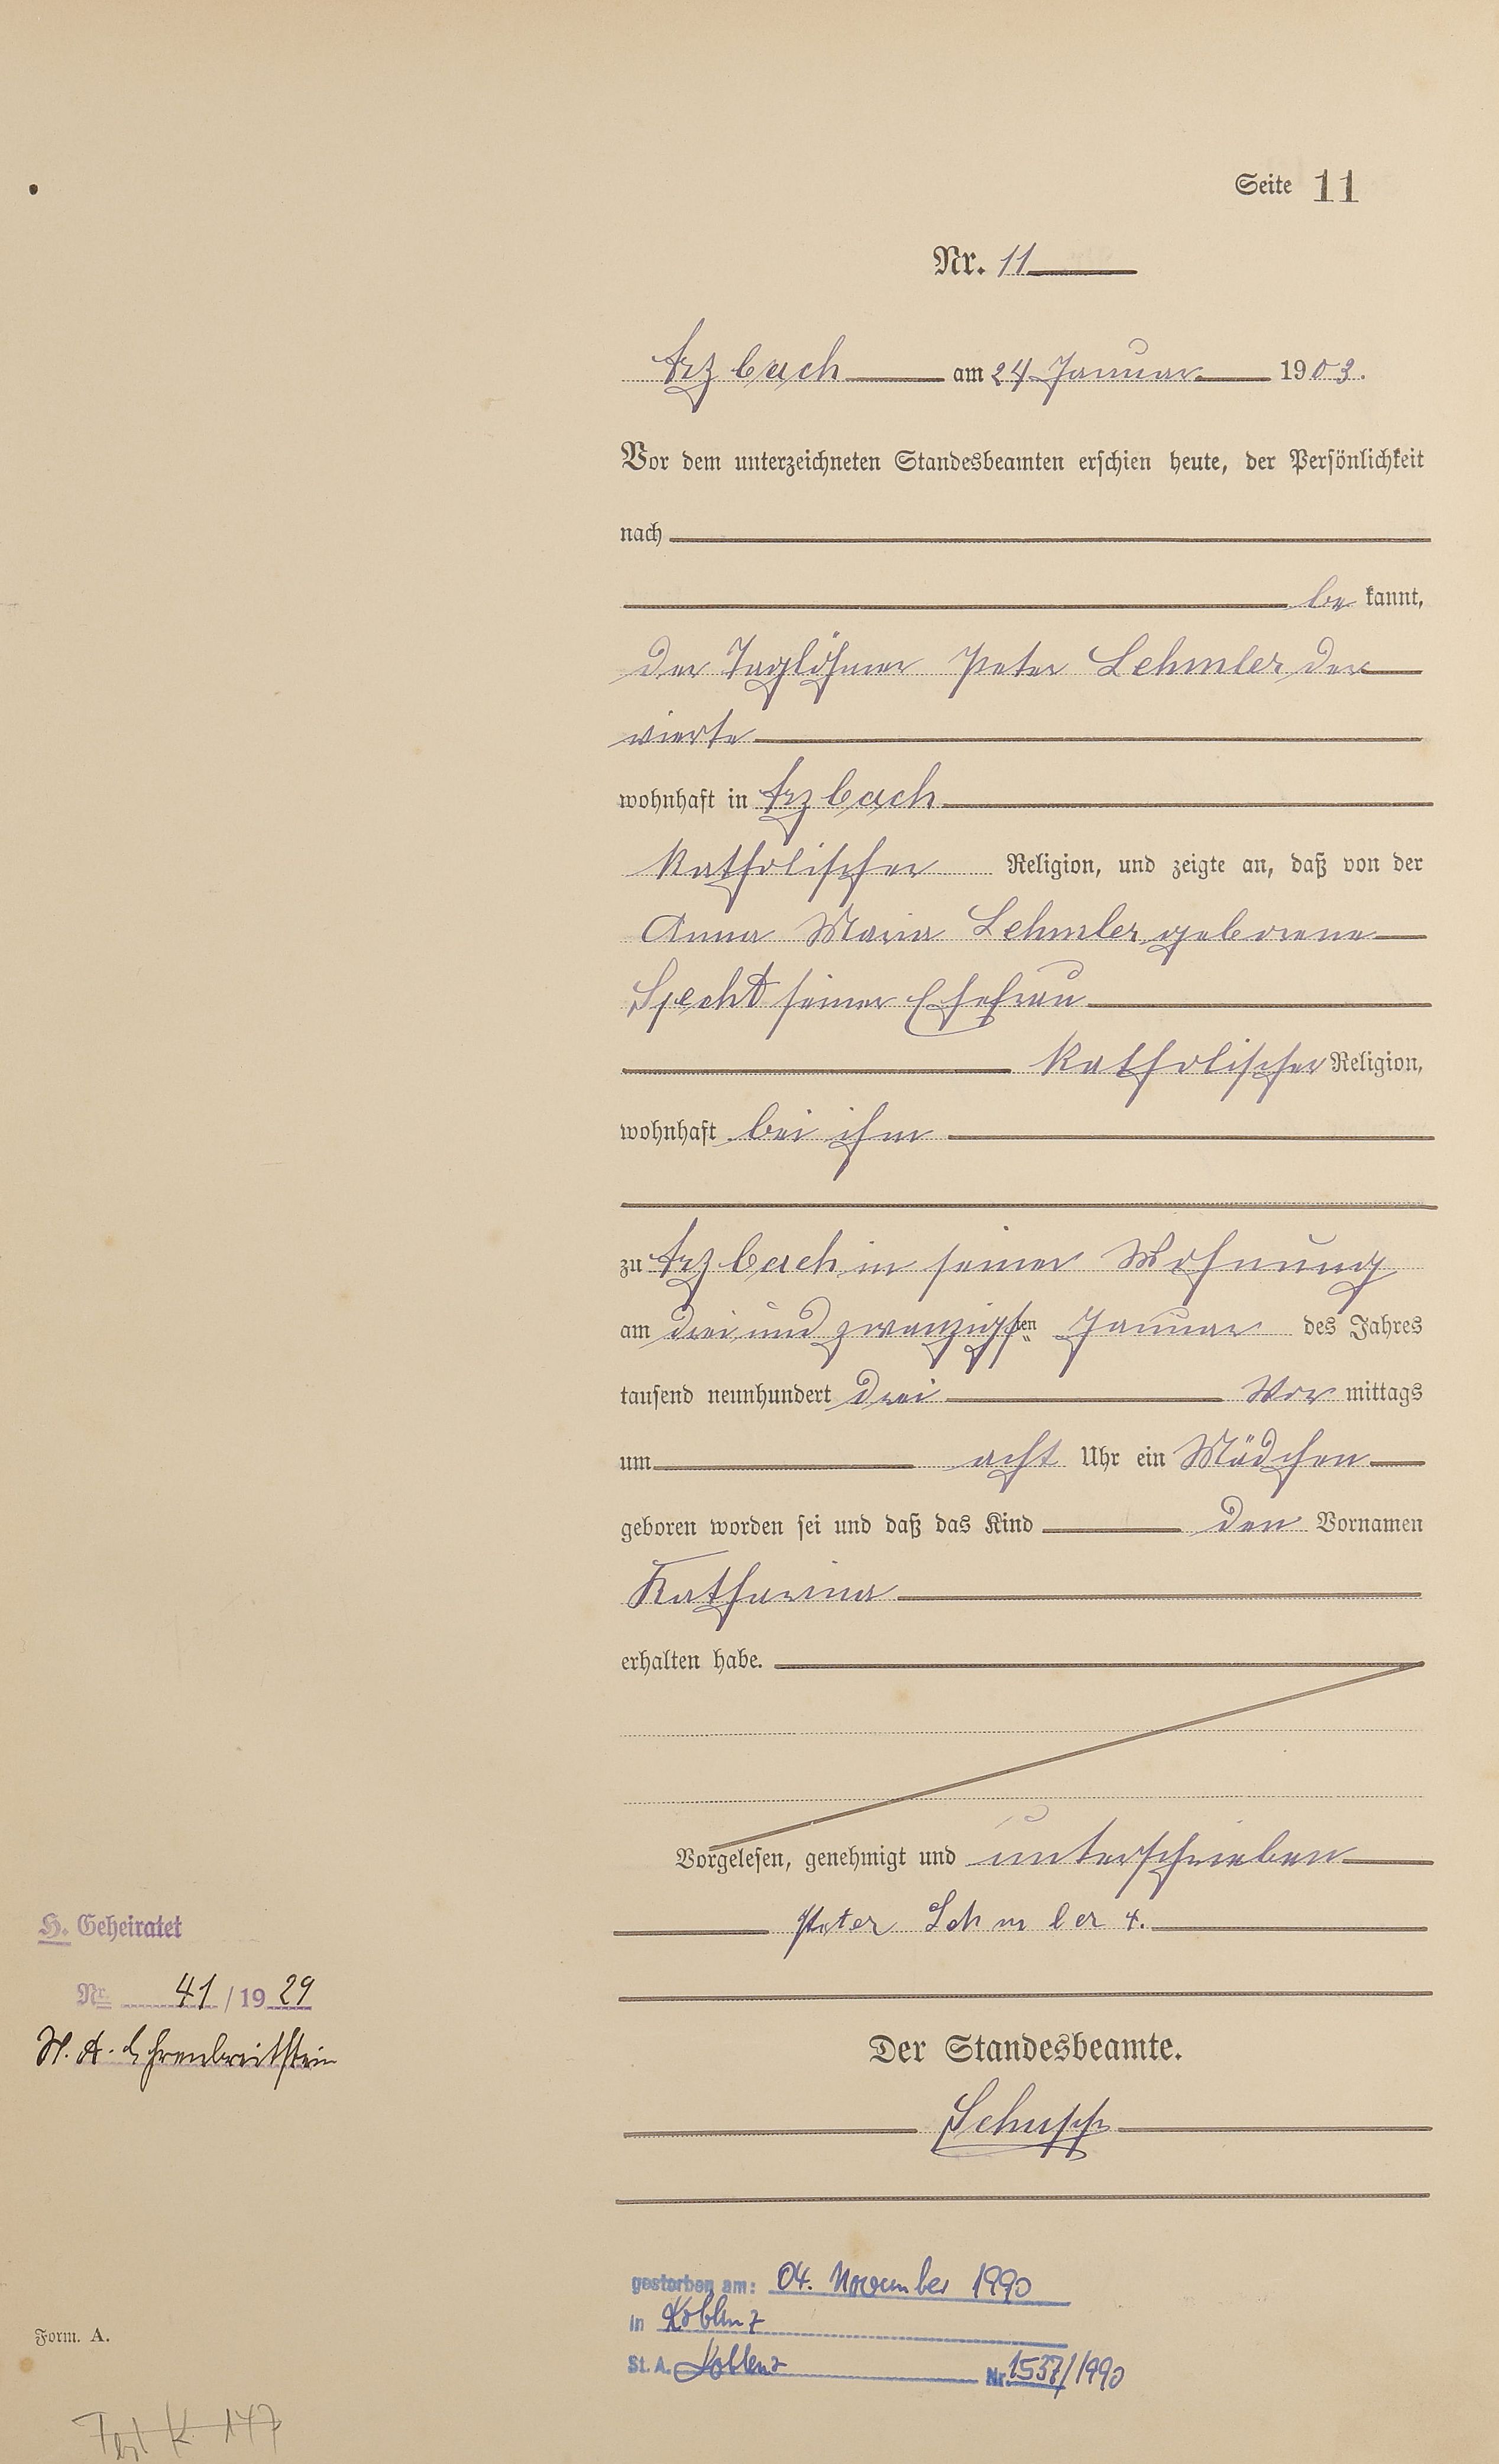 Seite 11
Nr. 11
Arzbach am 24 Januar 1903.
Vor dem unterzeichneten Standesbeamten erschien heute, der Persönlichkeit
nach
be kannt,
der Taglöhner Peter Lehmler der
vierte
wohnhaft in Arzbach
katholischer Religion, und zeigte an, daß von der
Anna Maria Lehmler geborene
Specht seiner Ehefrau
katholischer Religion,
wohnhaft bei ihm
zu Arzbach in seiner Wohnung
am drei und zwanzigsten Januar des Jahres
tausend neunhundert drei Vor mittags
um acht Uhr ein Mädchen
geboren worden sei und daß das Kind den Vornamen
Katharina
erhalten habe.
Vorgelesen, genehmigt und unterschrieben
Peter Lehmler 4.
H. Geheiratet
Nr. 41 / 19 29
St. A. Ehrenbreitstein
Der Standesbeamte.
Schupp
gestorben am: 04. November 1990
in Koblenz
St. A. Koblenz Nr. 1537/1990
Form. A.
K 147